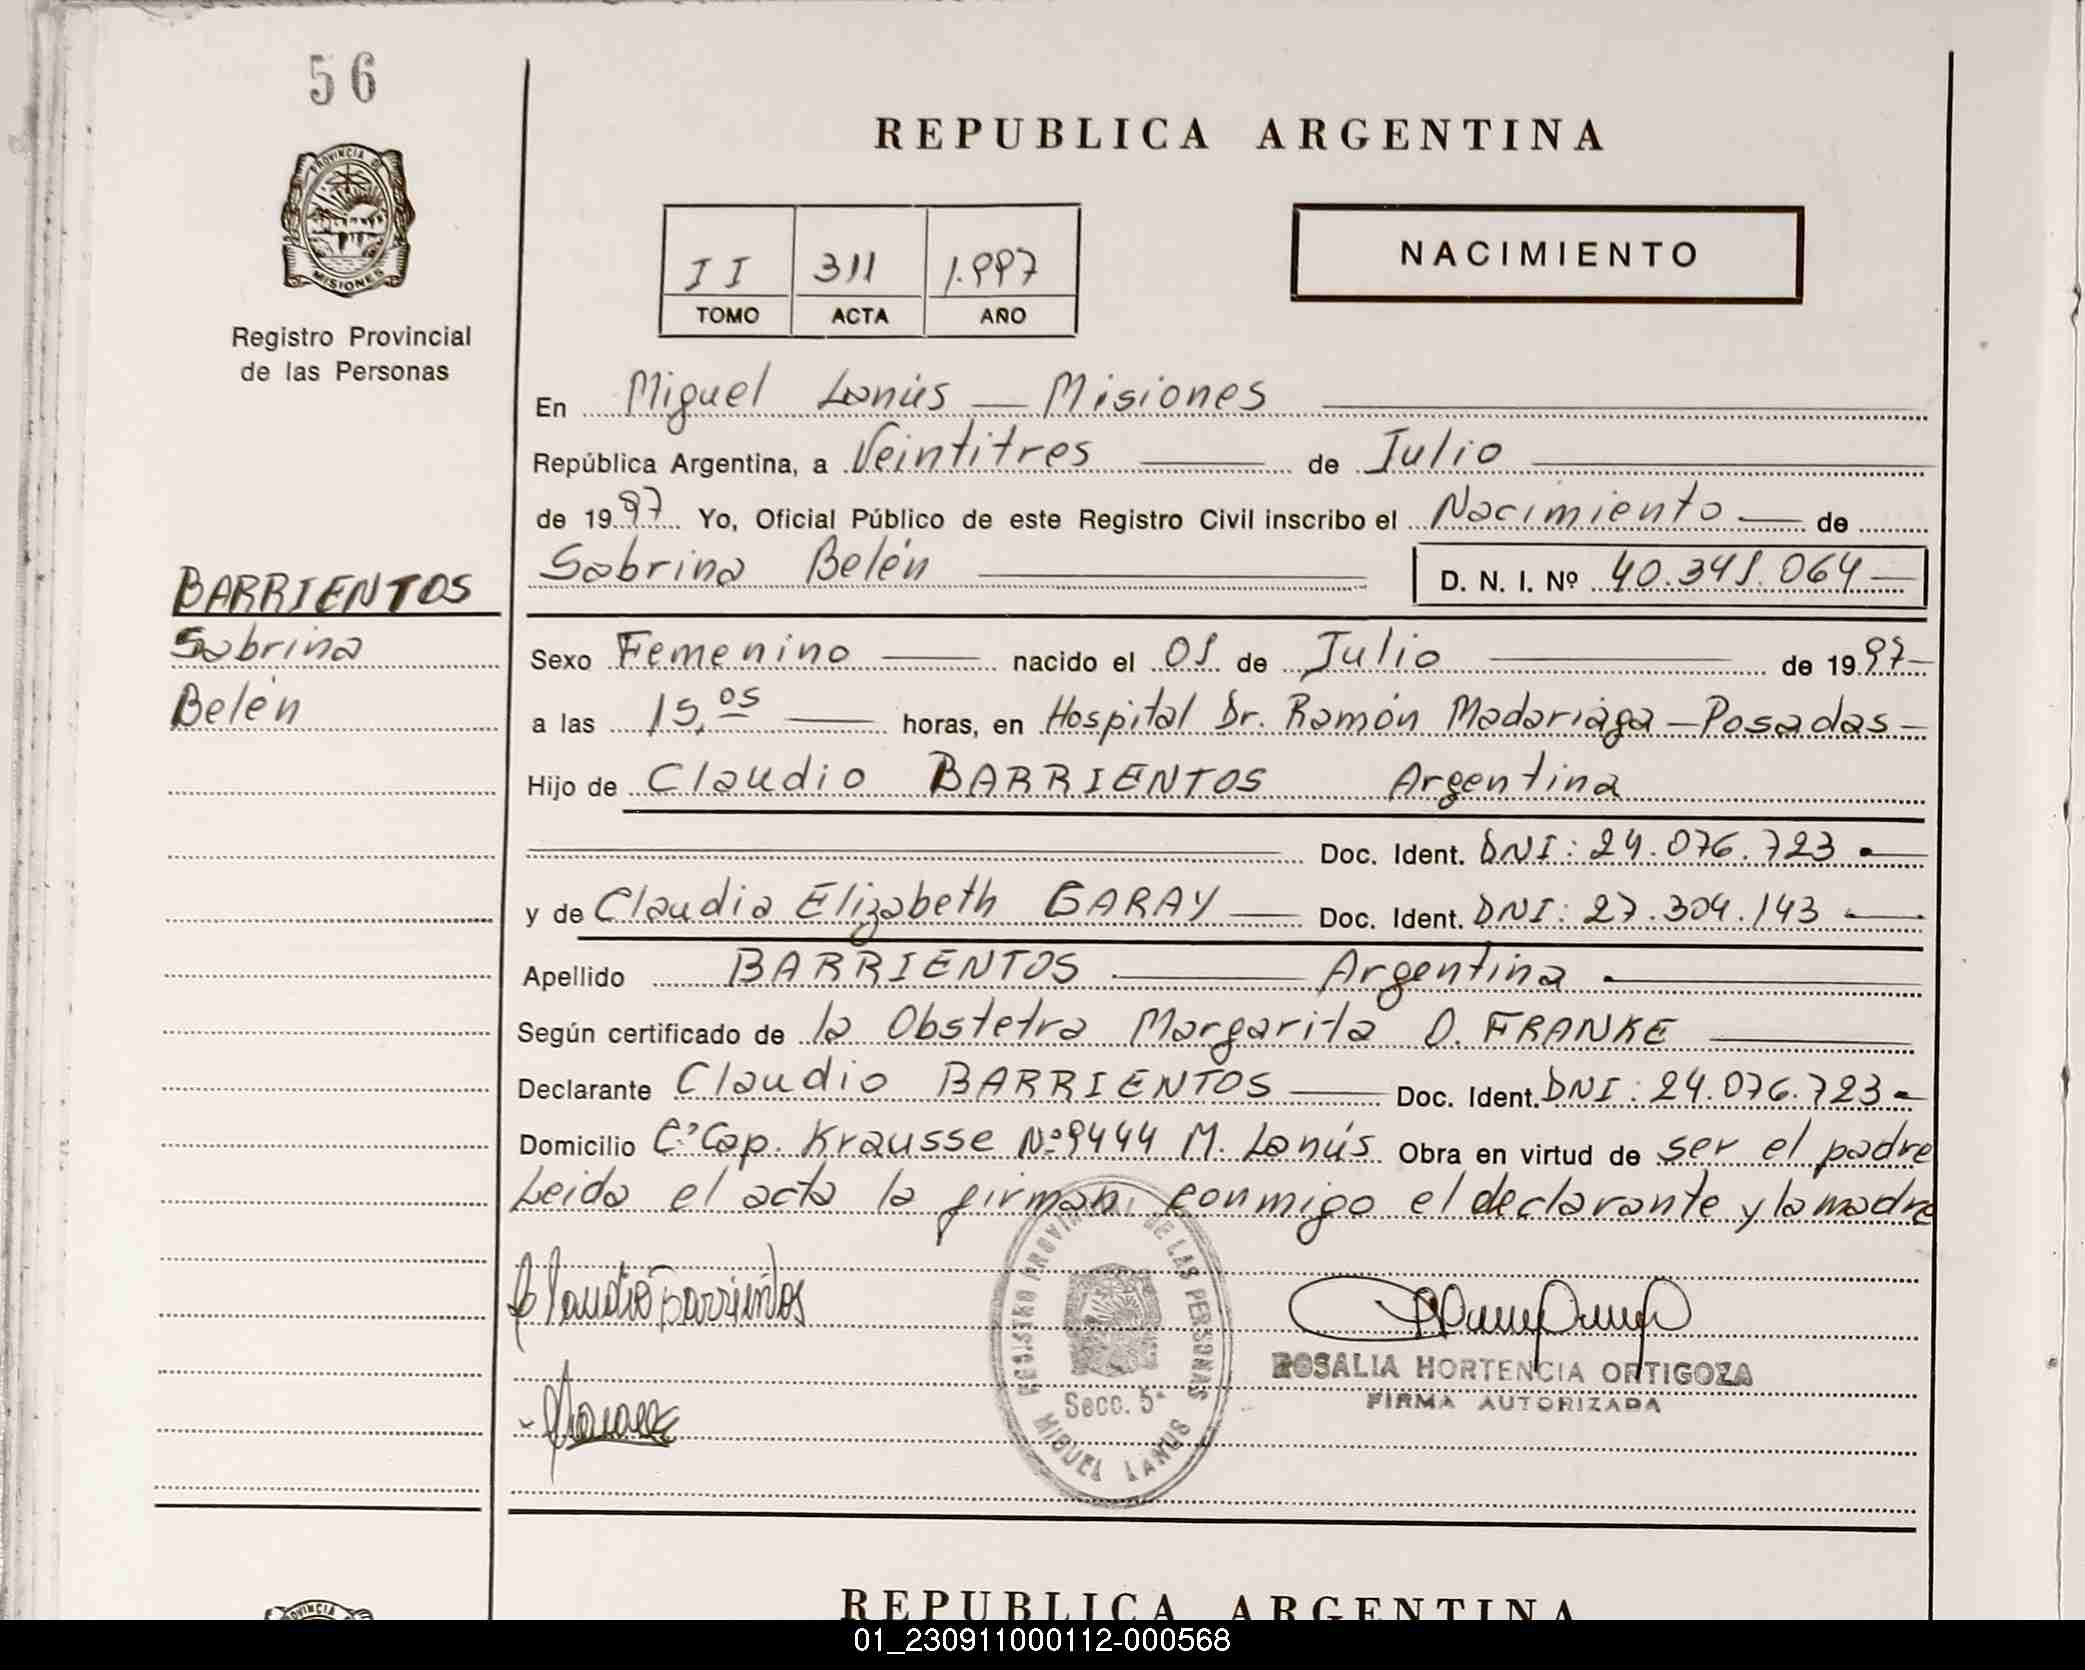 56
REPUBLICA ARGENTINA
PROVINCIA DE
MISIONES
Registro Provincial
de las Personas
II 311 1.997
TOMO ACTA AÑO
NACIMIENTO
En Miguel Lanús — Misiones
República Argentina, a Veintitres de Julio
de 1997 Yo, Oficial Público de este Registro Civil inscribo el Nacimiento — de
Sabrina Belén D. N. I. Nº 40.341.064
BARRIENTOS
Sabrina
Belén
Sexo Femenino nacido el 01 de Julio de 1997
a las 15,05 horas, en Hospital Dr. Ramón Madariaga — Posadas —
Hijo de Claudio BARRIENTOS Argentina
Doc. Ident. DNI: 24.076.723
y de Claudia Elizabeth GARAY Doc. Ident. DNI: 27.304.143
Apellido BARRIENTOS Argentina
Según certificado de la Obstetra Margarita O. FRANKE
Declarante Claudio BARRIENTOS Doc. Ident. DNI: 24.076.723
Domicilio Cº Cap. Krausse Nº 9444 M. Lanús Obra en virtud de ser el padre
Leida el acta la firman conmigo el declarante y la madre
Claudio Barrientos
REGISTRO PROVINCIAL DE LAS PERSONAS
Secc. 5ª
MIGUEL LANUS
ROSALIA HORTENCIA ORTIGOZA
FIRMA AUTORIZADA
REPUBLICA ARGENTINA
01_230911000112-000568